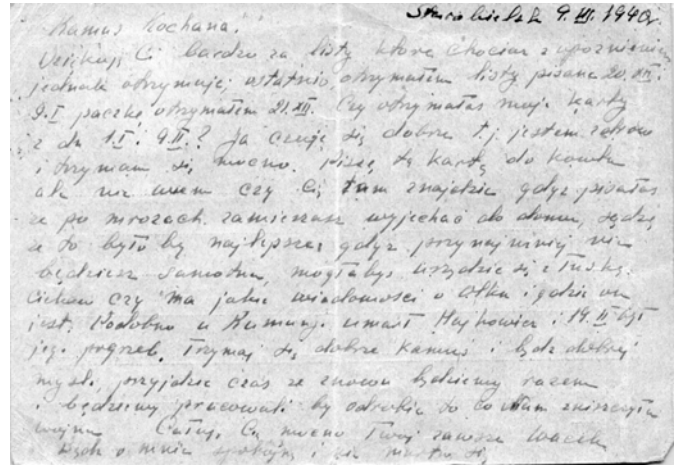 Starobielsk 9.III.1940r.
Kamuś Kochana!
Dziękuję Ci bardzo za listy które chociaż z opóźnieniem
jednak otrzymuję, ostatnio otrzymałem listy pisane 20.XII i
9.I paczkę otrzymałem 21.XII. Czy otrzymałaś moje karty
z dn 1.I. 9.II.? Ja czuję się dobrze t.j. jestem zdrów
i trzymam się mocno. Piszę tę kartę do Kowla
ale nie wiem czy Cię tam znajdzie gdyż pisałaś
że po mrozach zamierzasz wyjechać do domu, sądzę
że to było by najlepsze, gdyż przynajmniej nie
będziesz samotna, mogłabyś urządzić się z Tuśką.
Ciekaw czy ma jakie wiadomości o Olku i gdzie on
jest. Podobno w Rumunji umarł Hajkowicz i 19.II był
jego pogrzeb. Trzymaj się dobrze Kamuś i bądź dobrej
myśli, przyjdzie czas że znowu będziemy razem
i będziemy pracowali by odrobić to co Nam zniszczyła
wojna Całuję Cię mocno Twój zawsze Wacek
Bądź o mnie spokojną i nie martw się